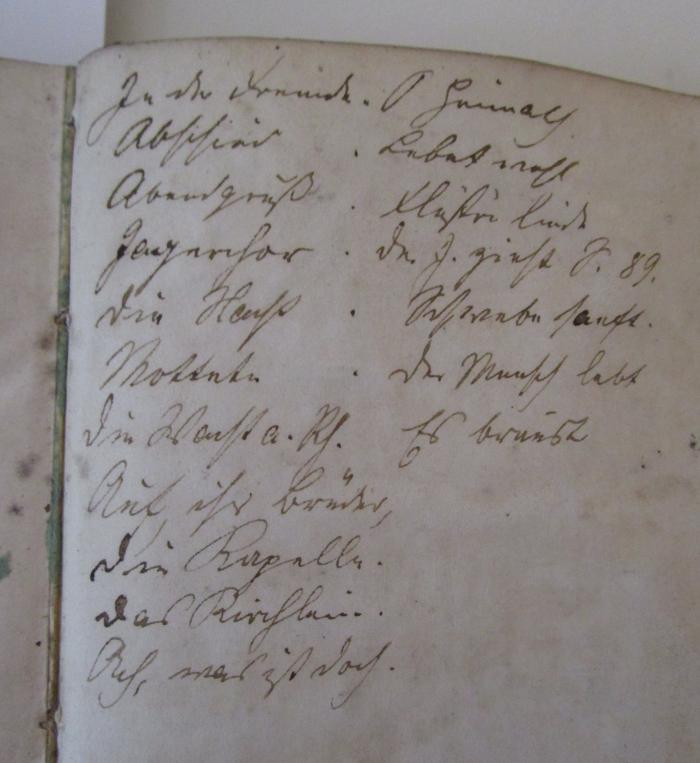 In der Fremde. O Heimath
Abschied . Lebet wohl
Abendgruß . Flüstre Linde
Jägerchor . Der J. zieht S. 89.
Die Nacht . Schwebe sanft.
Mottete . Der Mensch lebt
Die Wacht a. Rh. Es braust
Auf, ihr Brüder,
Die Kapelle.
Das Kirchlein.
Ach, was ist doch.